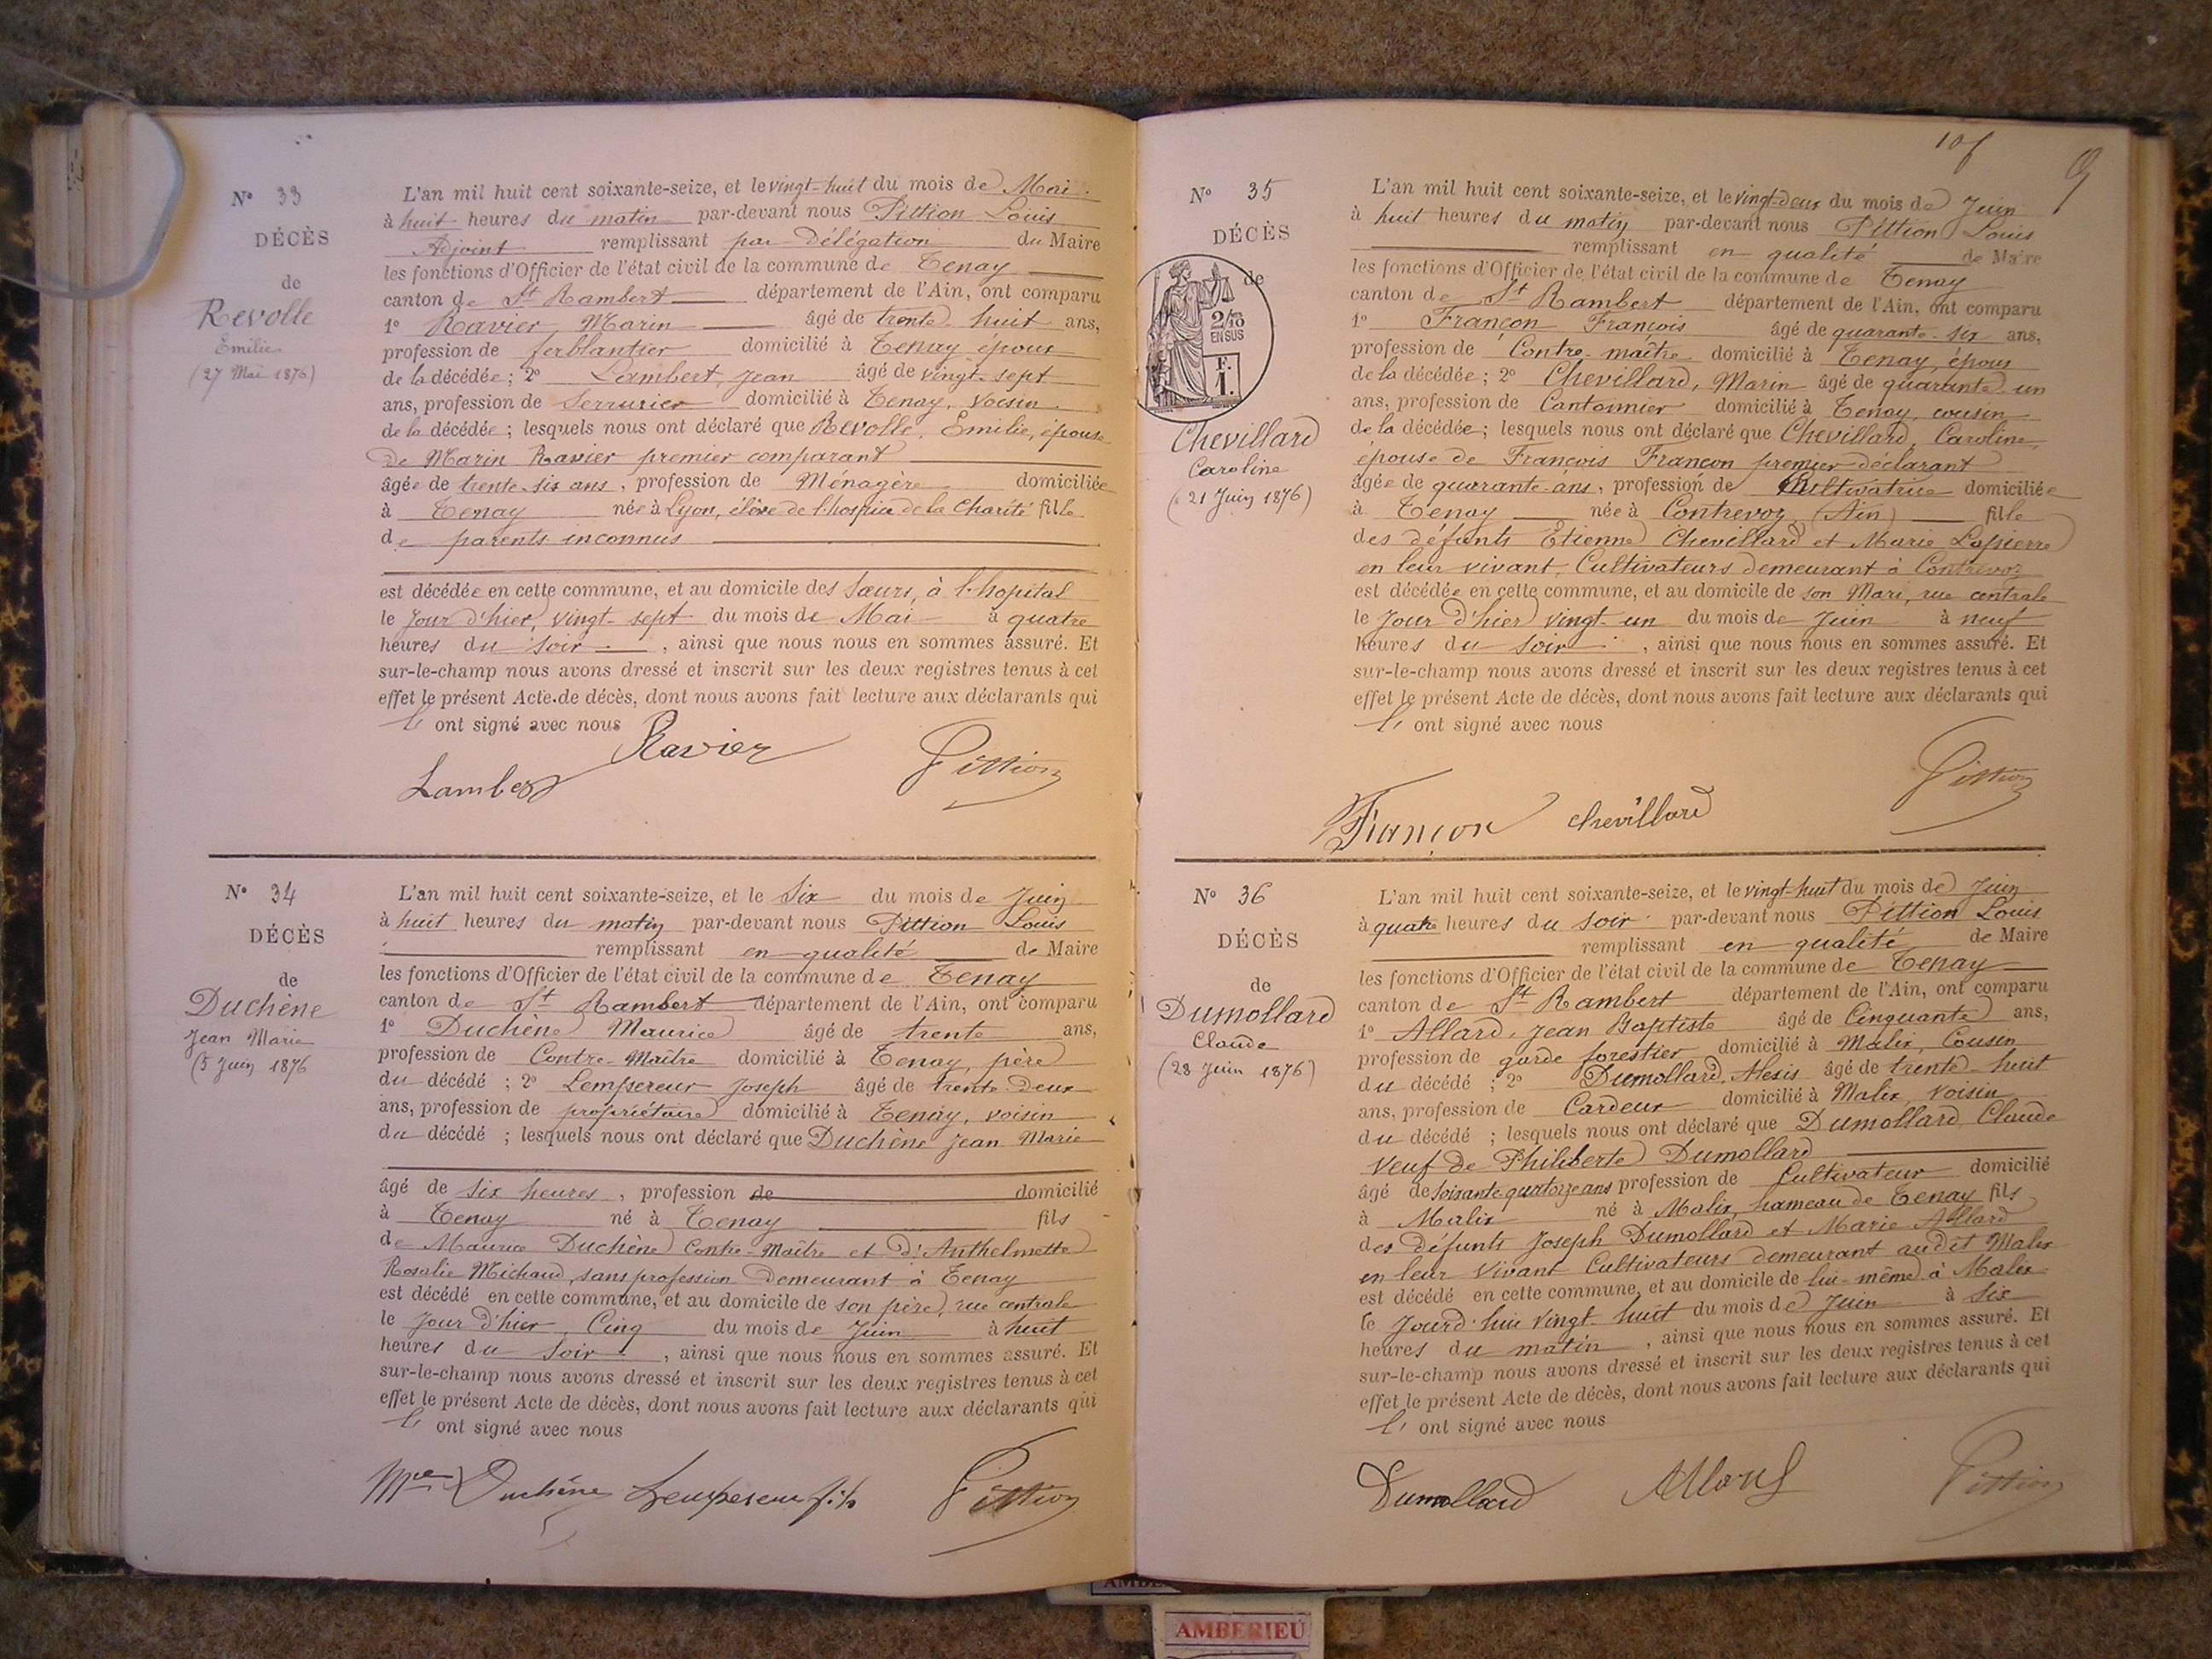 N° 33
DÉCÈS
de
Revolle
Emilie
(27 Mai 1876)
L'an mil huit cent soixante-seize, et le vingt-huit du mois de Mai
à huit heures du matin par-devant nous Pittion Louis
Adjoint remplissant par Délégation du Maire
les fonctions d'Officier de l'état civil de la commune de Tenay
canton de St Rambert département de l'Ain, ont comparu
1° Ravier Marin âgé de trente-huit ans,
profession de ferblantier domicilié à Tenay époux
de la décédée ; 2° Lambert, Jean âgé de vingt-sept
ans, profession de Serrurier domicilié à Tenay, voisin
de la décédée ; lesquels nous ont déclaré que Revolle, Emilie, épouse
de Marin Ravier premier comparant
âgée de trente-six ans, profession de Ménagère domiciliée
à Tenay née à Lyon, élève de l'hospice de la Charité fille
de parents inconnus
est décédée en cette commune, et au domicile des Sœurs, à l'hopital
le Jour d'hier, vingt-sept du mois de Mai à quatre
heures du soir, ainsi que nous nous en sommes assuré. Et
sur-le-champ nous avons dressé et inscrit sur les deux registres tenus à cet
effet le présent Acte de décès, dont nous avons fait lecture aux déclarants qui
ont signé avec nous
Ravier
Lambert
Pittion
N° 34
DÉCÈS
de
Duchène
Jean Marie
(5 Juin 1876
L'an mil huit cent soixante-seize, et le Six du mois de Juin
à huit heures du matin par-devant nous Pittion Louis
remplissant en qualité de Maire
les fonctions d'Officier de l'état civil de la commune de Tenay
canton de St Rambert département de l'Ain, ont comparu
1° Duchène Maurice âgé de trente ans,
profession de Contre-Maître domicilié à Tenay, père
du décédé ; 2° Lempereur Joseph âgé de trente-Deux
ans, profession de propriétaire domicilié à Tenay, voisin
du décédé ; lesquels nous ont déclaré que Duchène Jean Marie
âgé de six heures, profession de domicilié
à Tenay né à Tenay fils
de Maurice Duchène Contre-Maître et d'Anthelmette
Rosalie Michaud, sans profession Demeurant à Tenay
est décédé en cette commune, et au domicile de son père, rue centrale
le Jour d'hier, Cinq du mois de Juin à huit
heures du soir, ainsi que nous nous en sommes assuré. Et
sur-le-champ nous avons dressé et inscrit sur les deux registres tenus à cet
effet le présent Acte de décès, dont nous avons fait lecture aux déclarants qui
ont signé avec nous
Mce Duchêne Lempereur fils Pittion
N° 35
DÉCÈS
de
2/10
EN SUS
F.
1.
Chevillard
Caroline
(21 Juin 1876)
L'an mil huit cent soixante-seize, et le vingt-deux du mois de Juin
à huit heures du matin par-devant nous Pittion Louis
remplissant en qualité de Maire
les fonctions d'Officier de l'état civil de la commune de Tenay
canton de St Rambert département de l'Ain, ont comparu
1° Françon François âgé de quarante-six ans,
profession de Contre-maître domicilié à Tenay, époux
de la décédée ; 2° Chevillard, Marin âgé de quarante un
ans, profession de Cantonnier domicilié à Tenay, cousin
de la décédée ; lesquels nous ont déclaré que Chevillard, Caroline,
épouse de François Françon premier déclarant
âgée de quarante-ans, profession de Cultivatrice domiciliée
à Tenay née à Contrevoz (Ain) fille
des défunts Etienne Chevillard et Marie Lapierre
en leur vivant, Cultivateurs demeurant à Contrevoz
est décédée en cette commune, et au domicile de son Mari, rue centrale
le Jour d'hier vingt-un du mois de Juin à neuf
heures du soir, ainsi que nous nous en sommes assuré. Et
sur-le-champ nous avons dressé et inscrit sur les deux registres tenus à cet
effet le présent Acte de décès, dont nous avons fait lecture aux déclarants qui
ont signé avec nous
Pittion
Françon chevillard
N° 36
DÉCÈS
de
Dumollard
Claude
(28 Juin 1876)
L'an mil huit cent soixante-seize, et le vingt-huit du mois de Juin
à quatre heures du soir par-devant nous Pittion Louis
remplissant en qualité de Maire
les fonctions d'Officier de l'état civil de la commune de Tenay
canton de St Rambert département de l'Ain, ont comparu
1° Allard, Jean Baptiste âgé de Cinquante ans,
profession de garde forestier domicilié à Malix, Cousin
du décédé ; 2° Dumollard, Alexis âgé de trente-huit
ans, profession de Cardeur domicilié à Malix, voisin
du décédé ; lesquels nous ont déclaré que Dumollard, Claude
veuf de Philiberte Dumollard
âgé de soixante quatorze ans profession de Cultivateur domicilié
à Malix né à Malix, hameau de Tenay fils
des Défunts Joseph Dumollard et Marie Allard
en leur vivant Cultivateurs demeurant audit Malix
est décédé en cette commune, et au domicile de lui-même à Malix
le Jourd'hui vingt-huit du mois de Juin à six
heures du matin, ainsi que nous nous en sommes assuré. Et
sur-le-champ nous avons dressé et inscrit sur les deux registres tenus à cet
effet le présent Acte de décès, dont nous avons fait lecture aux déclarants qui
ont signé avec nous
Dumollard Allard Pittion
AMBERIEU